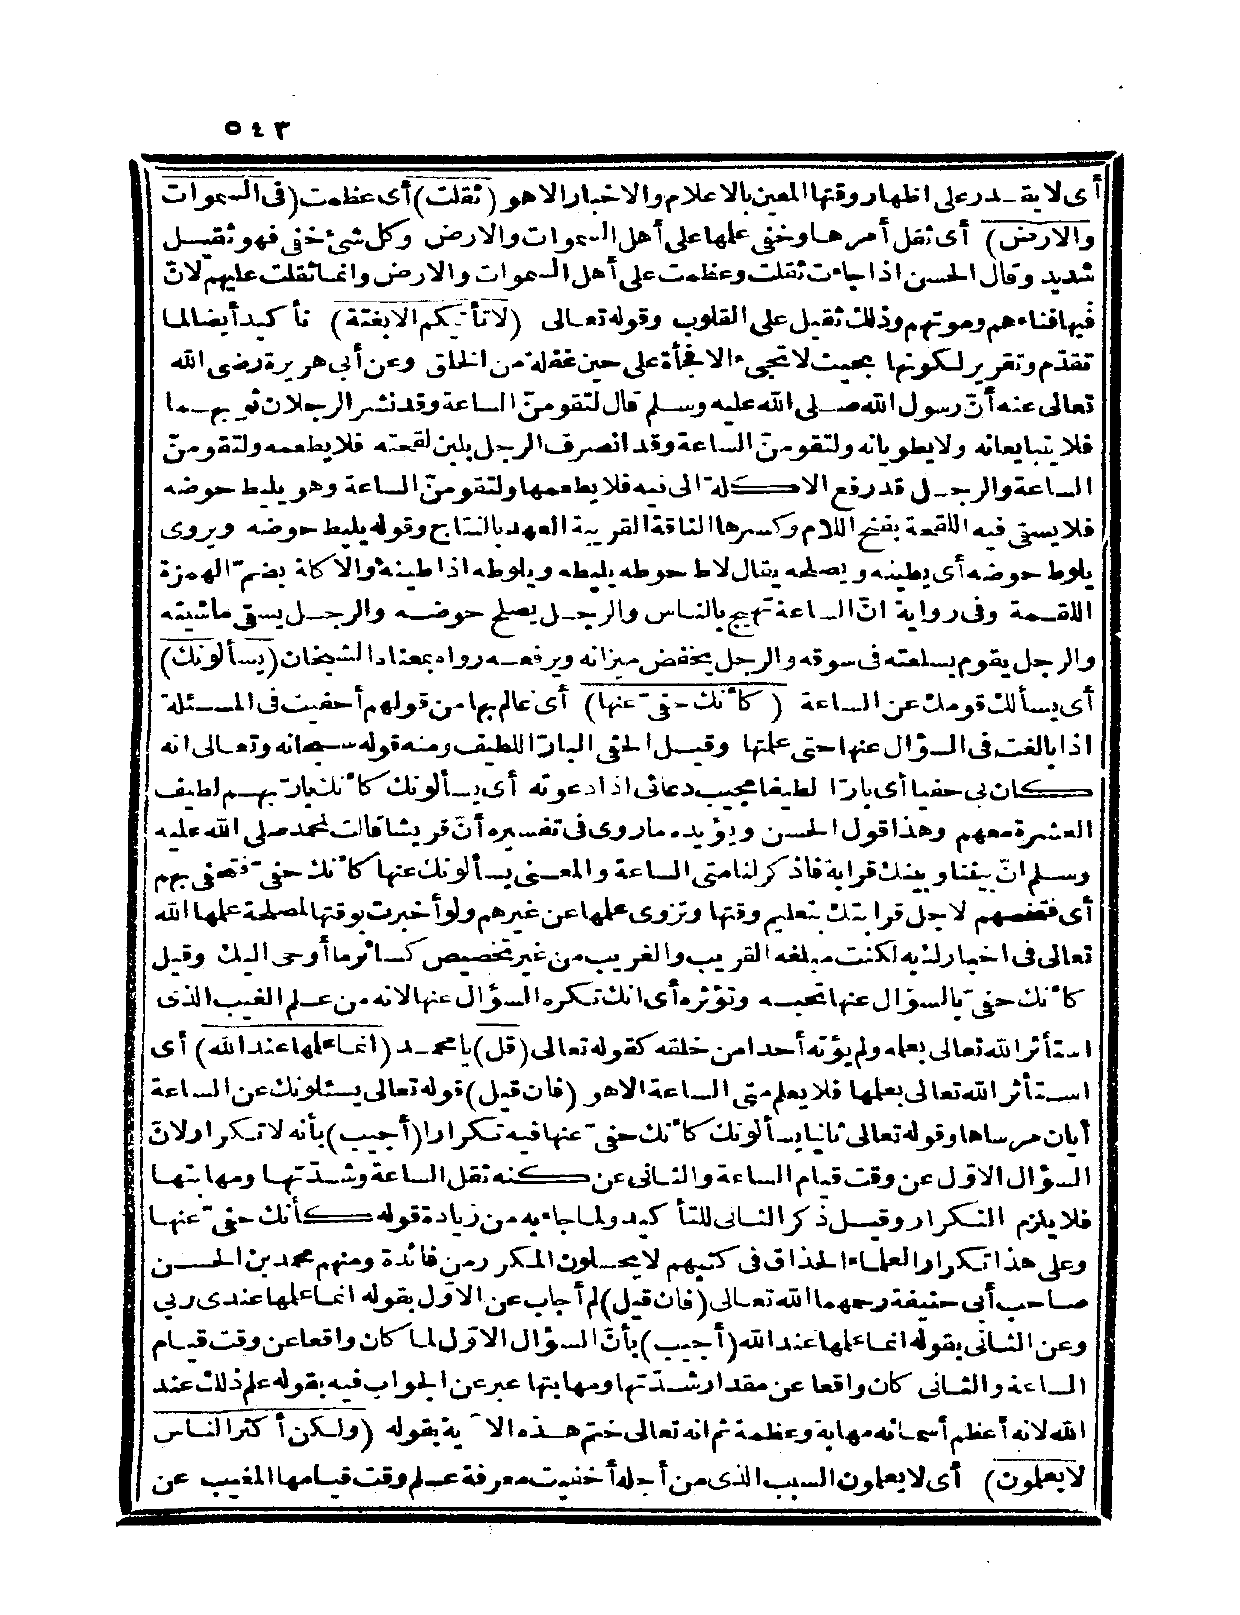 ٥٤٣
أى لا يقدر على اظهار وقتها المعين بالاعلام والاخبار الا هو (ثقلت) أى عظمت (فى السموات
والارض) أى ثقل أمرها وخفى علمها على أهل السموات والارض وكل شئ خفى فهو ثقيل
شديد وقال الحسن اذا جاءت ثقلت وعظمت على أهل السموات والارض وانما ثقلت عليهم لانّ
فيها فناءهم وموتهم وذلك ثقيل على القلوب وقوله تعالى (لا تأتيكم الا بغتة) تأكيد أيضا لما
تقدّم وتقرير لكونها بحيث لا تجىء الا فجأة على حين غفلة من الخلق وعن أبى هريرة رضى الله
تعالى عنه أنّ رسول الله صلى الله عليه وسلم قال لتقومنّ الساعة وقد نشر الرجلان ثوبهما
فلا يتبايعانه ولا يطويانه ولتقومنّ الساعة وقد انصرف الرجل بلبن لقحته فلا يطعمه ولتقومنّ
الساعة والرجل قد رفع الاكلة الى فيه فلا يطعمها ولتقومنّ الساعة وهو يليط حوضه
فلا يسقى فيه اللقحة بفتح اللام وكسرها الناقة القريبة العهد بالنتاج وقوله يليط حوضه ويروى
يلوط حوضه أى يطينه و يصلحه يقال لاط حوطه يليطه و يلوطه اذا طينه والاكلة بضم الهمزة
اللقمة وفى رواية انّ الساعة تهيج بالناس والرجل يصلح حوضه والرجل يسقى ماشيته
والرجل يقوم بسلعته فى سوقه والرجل يخفض ميزانه ويرفعه رواه بمعناه الشيخان (يسألونك)
أى يسألك قومك عن الساعة (كأنك حفىّ عنها) أى عالم بها من قولهم أحفيت فى المسئلة
اذا بالغت فى السؤال عنها حتى علمتها وقيل الحفى البارّ اللطيف ومنه قوله سبحانه وتعالى انه
كان بى حفيا أى بارّا لطيفا مجيب دعائى اذا دعوته أى يسألونك كأنك بارّ بهم لطيف
العشرة معهم وهذا قول الحسن ويؤيده ما روى فى تفسيره أنّ قريشا قالت لمحمد صلى الله عليه
وسلم انّ بيننا وبينك قرابة فاذكر لنا متى الساعة والمعنى يسألونك عنها كأنك حفىّ فتحفى بهم
أى فتخصهم لاجل قرابتك بتعليم وقتها وتزوى علمها عن غيرهم ولو أخبرت بوقتها لمصلحة علمها الله
تعالى فى اخبارك به لكنت مبلغه القريب والغريب من غير تخصيص كسائر ما أوحى اليك وقيل
كأنك حفىّ بالسؤال عنها تحبه وتؤثره أى انك تكره السؤال عنها لانه من علم الغيب الذى
استأثر الله تعالى بعلمه ولم يؤته أحدا من خلقه كقوله تعالى (قل) يا محمد (انما علمها عند الله) أى
استأثر الله تعالى بعلمها فلا يعلم متى الساعة الا هو (فان قيل) قوله تعالى يسئلونك عن الساعة
أيان مرساها وقوله تعالى ثانيا يسألونك كأنك حفىّ عنها فيه تكرار (أجيب) بأنه لا تكرار لانّ
السؤال الاوّل عن وقت قيام الساعة والثانى عن كنه ثقل الساعة وشدّتها ومهابتها
فلا يلزم التكرار وقيل ذكر الثانى للتأكيد ولما جاء به من زيادة قوله كأنك حفىّ عنها
وعلى هذا تكرار العلماء الحذاق فى كتبهم لا يخلون المكرر من فائدة ومنهم محمد بن الحسن
صاحب أبى حنيفة رحمهما الله تعالى (فان قيل) لم أجاب عن الاوّل بقوله انما علمها عند ربى
وعن الثانى بقوله انما علمها عند الله (أجيب) بأنّ السؤال الاوّل لما كان واقعا عن وقت قيام
الساعة والثانى كان واقعا عن مقدار شدّتها ومهابتها عبر عن الجواب فيه بقوله علم ذلك عند
الله لانه أعظم أسمائه مهابة وعظمة ثم انه تعالى ختم هذه الآية بقوله (ولكن أكثر الناس
لا يعلمون) أى لا يعلمون السبب الذى من أجله أخفيت معرفة علم وقت قيامها المغيب عن